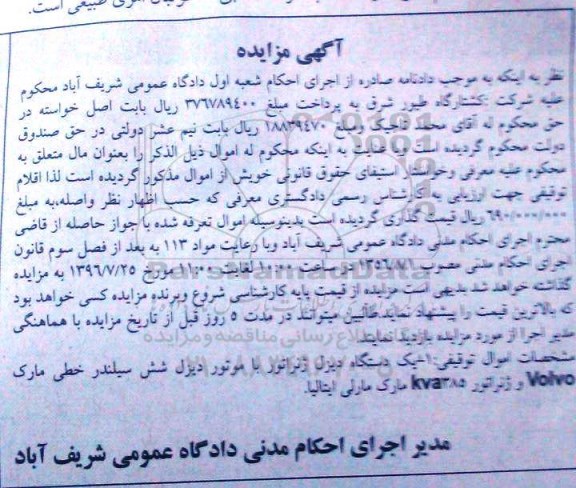 آگهی مزایده
نظر به اینکه به موجب دادنامه صادره از اجرای احکام شعبه اول دادگاه عمومی شریف آباد محکوم
علیه شرکت :کشتارگاه طیور شرق به پرداخت مبلغ ۳۷۶۷۸۹۴۰۰ ریال بابت اصل خواسته در
حق محکوم له آقای محمد تاجیک ومبلغ ۱۸۸۳۹۴۷۰ ریال بابت نیم عشر دولتی در حق صندوق
دولت محکوم گردیده است با عنایت به اینکه محکوم له اموال ذیل الذکر را بعنوان مال متعلق به
محکوم علیه معرفی وخواستار استیفای حقوق قانونی خویش از اموال مذکور گردیده است لذا اقلام
توقیفی جهت ارزیابی به کارشناس رسمی دادگستری معرفی که حسب اظهار نظر واصله،به مبلغ
۶۹۰/۰۰۰/۰۰۰ ریال قیمت گذاری گردیده است بدینوسیله اموال تعرفه شده با جواز حاصله از قاضی
محترم اجرای احکام مدنی دادگاه عمومی شریف آباد وبا رعایت مواد ۱۱۳ به بعد از فصل سوم قانون
اجرای احکام مدنی مصوب ۱۳۵۶/۸/۱ از ساعت ۱۰:۰۰ لغایت ۱۱:۰۰ مورخ ۱۳۹۶/۷/۲۵ به مزایده
گذاشته خواهد شد بدیهی است مزایده از قیمت پایه کارشناسی شروع وبرنده مزایده کسی خواهد بود
که بالاترین قیمت را پیشنهاد نماید طالبین میتوانند در مدت ۵ روز قبل از تاریخ مزایده با هماهنگی
مدیر اجرا از مورد مزایده بازدید نمایند.
مشخصات اموال توقیفی:۱-یک دستگاه دیزل ژنراتور با موتور دیزل شش سیلندر خطی مارک
Volvo و ژنراتور kva۳۸۵ مارک مارلی ایتالیا.
مدیر اجرای احکام مدنی دادگاه عمومی شریف آباد